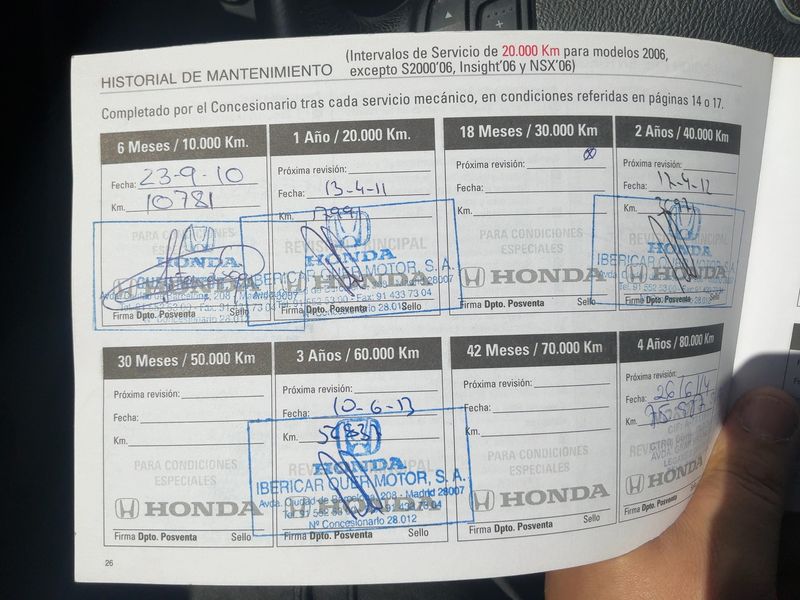 HISTORIAL DE MANTENIMIENTO
(Intervalos de Servicio de 20.000 Km para modelos 2006,
excepto S2000'06, Insight'06 y NSX'06)
Completado por el Concesionario tras cada servicio mecánico, en condiciones referidas en páginas 14 o 17.
6 Meses / 10.000 Km.
Fecha: 23-9-10
Km. 10781
PARA CONDICIONES
ESPECIALES
HONDA
HONDA
Firma Dpto. Posventa Sello
1 Año / 20.000 Km.
Próxima revisión:
Fecha: 13-4-11
Km.
HONDA
IBERICAR QUER MOTOR, S. A.
HONDA
Firma Dpto. Posventa Sello
18 Meses / 30.000 Km
Próxima revisión:
Fecha:
Km.
PARA CONDICIONES
ESPECIALES
HONDA
Firma Dpto. Posventa Sello
2 Años / 40.000 Km
Próxima revisión:
Fecha: 12-4-12
Km.
HONDA
HONDA
Firma Dpto. Posventa Sello
30 Meses / 50.000 Km
Próxima revisión:
Fecha:
Km.
PARA CONDICIONES
ESPECIALES
HONDA
Firma Dpto. Posventa Sello
3 Años / 60.000 Km
Próxima revisión:
Fecha: 10-6-13
Km.
HONDA
IBERICAR QUER MOTOR, S. A.
Avda. Ciudad de Barcelona, 208 - Madrid 28007
HONDA
Nº Concesionario 28.012
Firma Dpto. Posventa Sello
42 Meses / 70.000 Km
Próxima revisión:
Fecha:
Km.
PARA CONDICIONES
ESPECIALES
HONDA
Firma Dpto. Posventa Sello
4 Años / 80.000 Km
Próxima revisión:
Fecha: 26/6/14
Km.
HONDA
Firma Dpto. Posventa
26